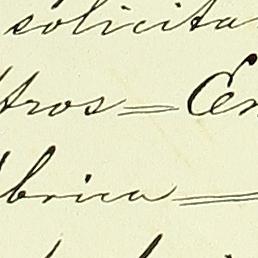 solicita
tros = En
brica =